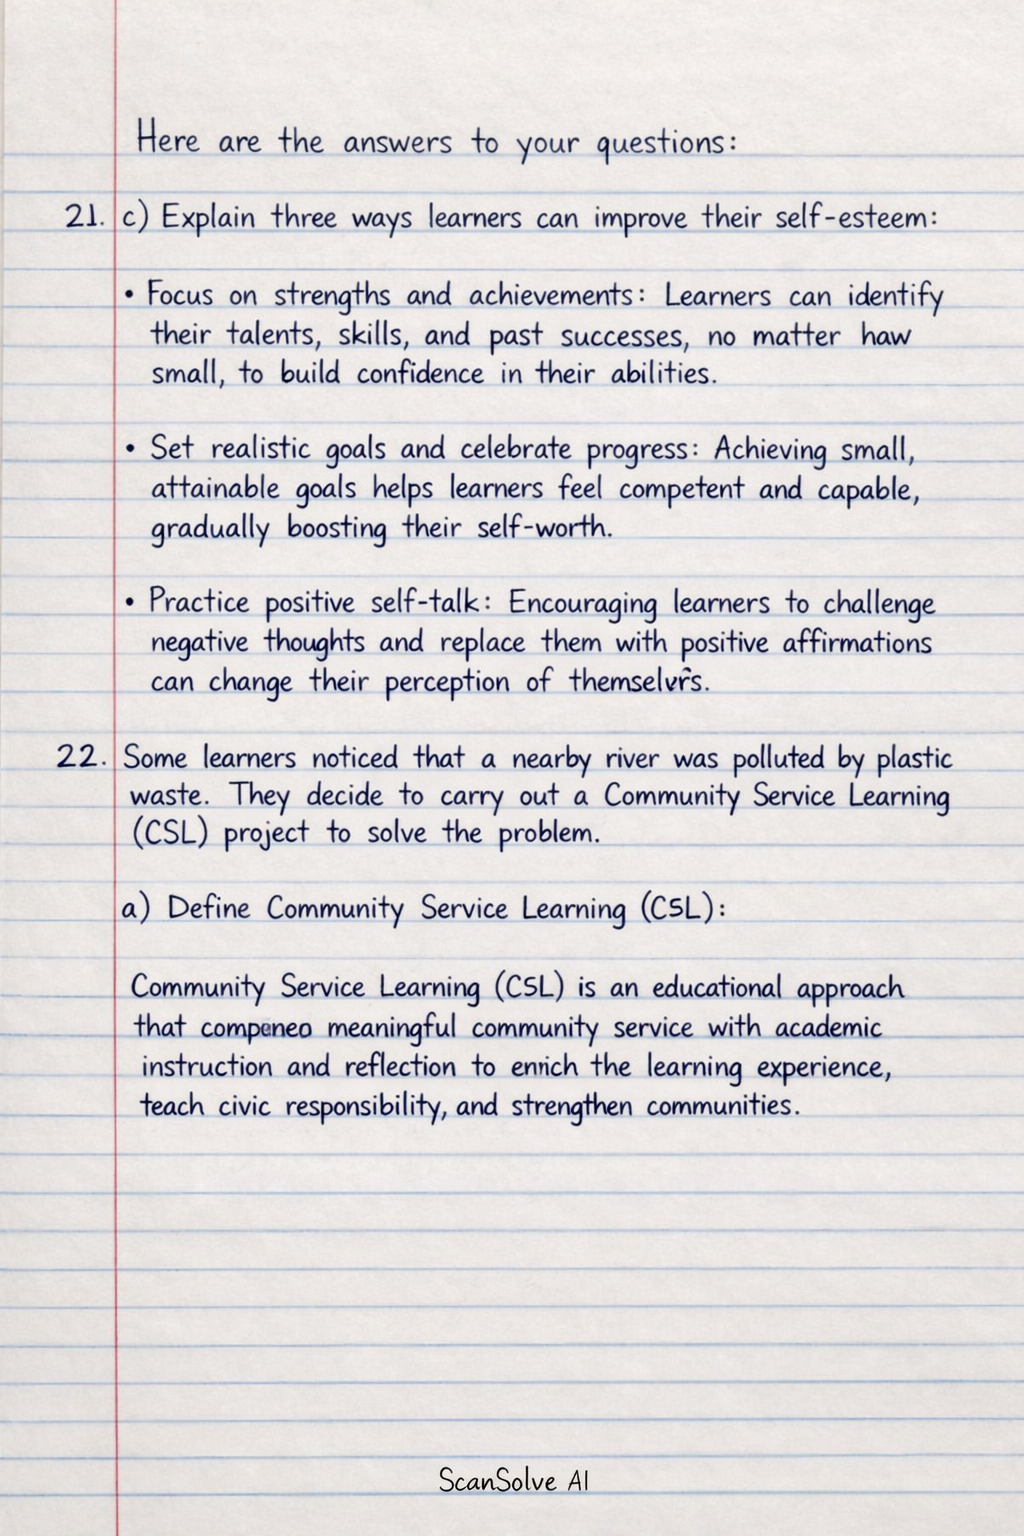 Here are the answers to your questions:
21. c) Explain three ways learners can improve their self-esteem:
• Focus on strengths and achievements: Learners can identify
their talents, skills, and past successes, no matter haw
small, to build confidence in their abilities.
• Set realistic goals and celebrate progress: Achieving small,
attainable goals helps learners feel competent and capable,
gradually boosting their self-worth.
• Practice positive self-talk: Encouraging learners to challenge
negative thoughts and replace them with positive affirmations
can change their perception of
22. Some learners noticed that a nearby river was polluted by plastic
waste. They decide to carry out a Community Service Learning
(CSL) project to solve the problem.
a) Define Community Service Learning (CSL):
Community Service Learning (CSL) is an educational approach
that meaningful community service with academic
instruction and reflection to enrich the learning experience,
teach civic responsibility, and strengthen communities.
ScanSolve AI